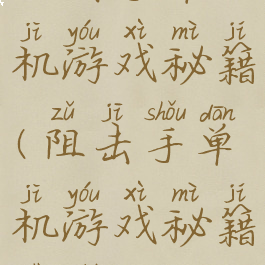 jī yóu xì mì jí
机游戏秘籍
zǔ jī shǒu dān
(阻击手单
jī yóu xì mì jí
机游戏秘籍